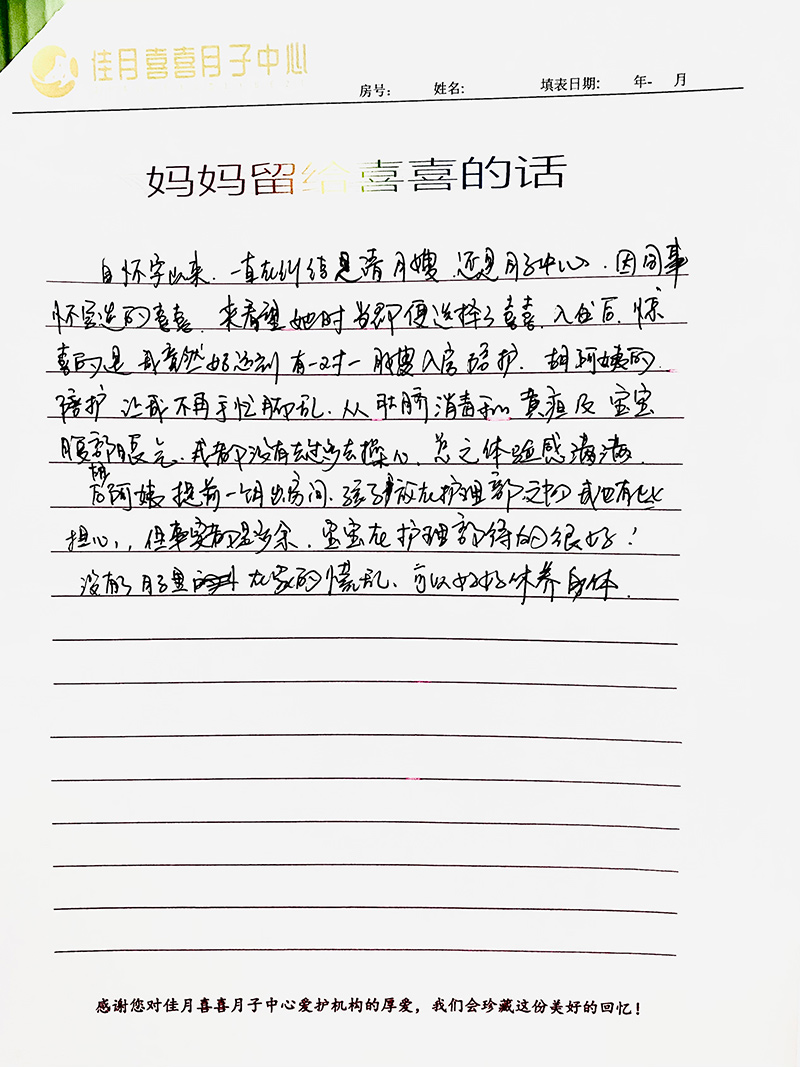 佳月喜喜月子中心
房号: 姓名: 填表日期: 年- 月
妈妈留给喜喜的话
自怀孕以来、一直在纠结是请月嫂 还是月子中心、因同事
怀宝选的喜喜、来看望她时当即便选择了喜喜、入住后、惊
喜的是我竟然 有一对一月嫂入房陪护、胡阿姨的
陪护 让我不再手忙脚乱、从肚脐消毒和黄疸及宝宝
腹部胀气、我都没有去过多去操心、总之体验感满满、
后胡阿姨提前一个月出房间、孩子放在护理部之初 我也有些
担心、但事实都是多余、宝宝在护理部待的很好!
没有了月子里 在家的慌乱、可以好好休养身体、
感谢您对佳月喜喜月子中心爱护机构的厚爱，我们会珍藏这份美好的回忆!